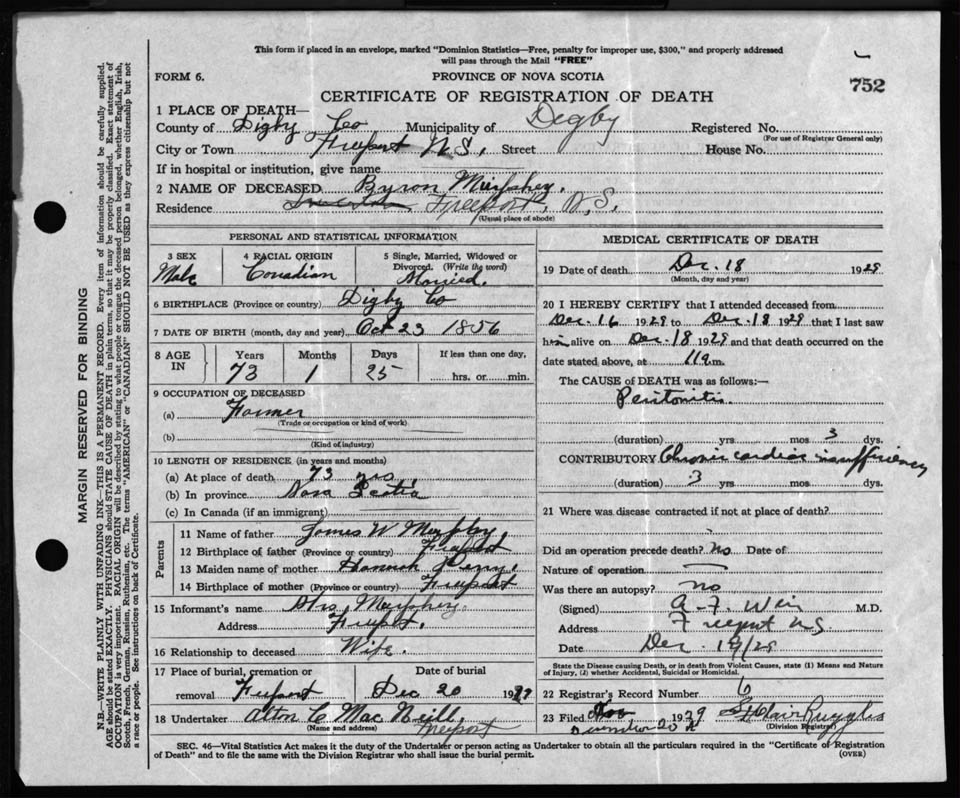 This form if placed in an envelope, marked "Dominion Statistics—Free, penalty for improper use, $300," and properly addressed
will pass through the Mail "FREE"
FORM 6. PROVINCE OF NOVA SCOTIA 752
CERTIFICATE OF REGISTRATION OF DEATH
1 PLACE OF DEATH—
County of Digby Co Municipality of Digby Registered No.
(For use of Registrar General only)
City or Town Freeport N.S. Street House No.
If in hospital or institution, give name
2 NAME OF DECEASED Byron Murphey.
Residence Freeport, N.S.
(Usual place of abode)
PERSONAL AND STATISTICAL INFORMATION
3 SEX 4 RACIAL ORIGIN 5 Single, Married, Widowed or
Divorced. (Write the word)
Male Canadian Married.
6 BIRTHPLACE (Province or country) Digby Co
7 DATE OF BIRTH (month, day and year) Oct 23 1856
8 AGE IN Years Months Days If less than one day,
73 1 25 hrs. or min.
9 OCCUPATION OF DECEASED
(a) Farmer
(Trade or occupation or kind of work)
(b)
(Kind of industry)
10 LENGTH OF RESIDENCE (in years and months)
(a) At place of death 73 yrs.
(b) In province Nova Scotia
(c) In Canada (if an immigrant)
Parents
11 Name of father James W Murphy
12 Birthplace of father (Province or country) Freeport
13 Maiden name of mother Hannah Perry.
14 Birthplace of mother (Province or country) Freeport
15 Informant's name Mrs. Murphey.
Address Freeport.
16 Relationship to deceased Wife.
17 Place of burial, cremation or Date of burial
removal Freeport Dec 20 1929
18 Undertaker Alton C MacNeill,
(Name and address) Freeport
MEDICAL CERTIFICATE OF DEATH
19 Date of death Dec. 18 1929
(Month, day and year)
20 I HEREBY CERTIFY that I attended deceased from
Dec. 16 1929 to Dec. 18 1929 that I last saw
him alive on Dec. 18 1929 and that death occurred on the
date stated above, at 11 a m.
The CAUSE OF DEATH was as follows:—
Peritonitis.
(duration) yrs. mos. 3 dys.
CONTRIBUTORY Chronic cardiac insufficiency
(duration) 3 yrs. mos. dys.
21 Where was disease contracted if not at place of death?
Did an operation precede death? no Date of
Nature of operation
Was there an autopsy? no
(Signed) A. F. Weir M.D.
Address Freeport N.S.
Date Dec. 19/29
State the Disease causing Death, or in death from Violent Causes, state (1) Means and Nature
of Injury, (2) whether Accidental, Suicidal or Homicidal.
22 Registrar's Record Number 6
23 Filed December 20th 1929 St Clair Ruggles
(Division Registrar)
SEC. 46—Vital Statistics Act makes it the duty of the Undertaker or person acting as Undertaker to obtain all the particulars required in the "Certificate of Registration
of Death" and to file the same with the Division Registrar who shall issue the burial permit. (OVER)
MARGIN RESERVED FOR BINDING
N.B.—WRITE PLAINLY WITH UNFADING INK—THIS IS A PERMANENT RECORD. Every item of information should be carefully supplied.
AGE should be stated EXACTLY. PHYSICIANS should STATE CAUSE OF DEATH in plain terms, so that it may be properly classified. Exact statement of
OCCUPATION is very important. RACIAL ORIGIN will be described by stating to what people or tongue the deceased person belonged, whether English, Irish,
Scotch, French, German, Russian, Ruthenian, etc. The terms "AMERICAN" or "CANADIAN" SHOULD NOT BE USED as they express citizenship but not
a race or people. See instructions on back of Certificate.